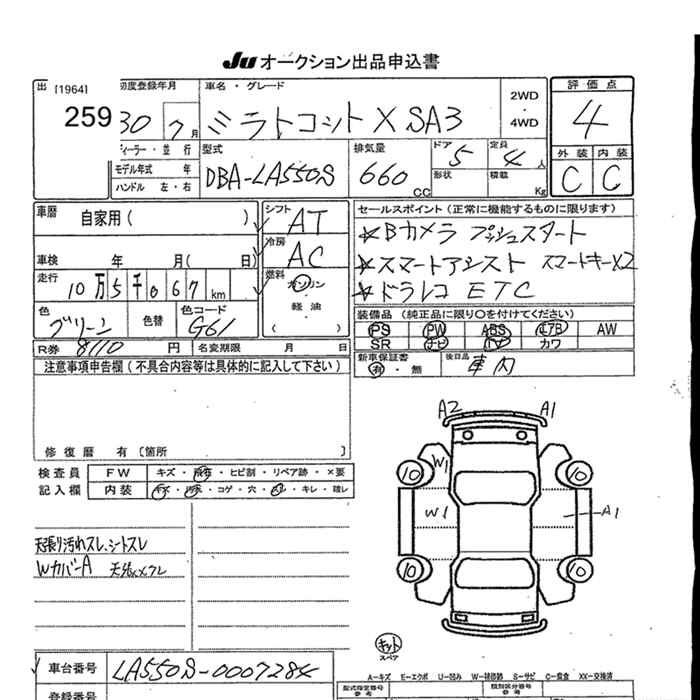 Ju オークション出品申込書
出 [1964] 259
初度登録年月 30 7月
車名・グレード ミラトコット X SA3
2WD・4WD
評価点 4
外装 内装
C C
ディーラー・並行
モデル年式 年
ハンドル 左・右
型式 DBA-LA550S
排気量 660 CC
ドア 5
定員 4人
形状
積載 Kg
車歴 自家用 ( )
シフト AT
冷房 AC
燃料 ガソリン・軽油 ( )
車検 年 月(日)
走行 10万5千067 km
色 グリーン 色替
色コード G61
R券 8110円 名変期限 月 日
セールスポイント (正常に機能するものに限ります)
☆Bカメラ プッシュスタート
☆スマートアシスト スマートキーX2
☆ドラレコ ETC
装備品 (純正品に限り○を付けてください)
PS PW ABS エアB AW
SR ナビ TV カワ
新車保証書 有・無
後日品 車内
注意事項申告欄 (不具合内容等は具体的に記入して下さい)
修復歴 有 [箇所 ]
検査員記入欄
FW キズ・飛石・ヒビ割・リペア跡・×要
内装 キズ・汚れ・コゲ・穴・スレ・キレ・破レ
天張り汚れスレ、シートスレ
WカバーA
A2 A1
10 W1 10
W1 A1
10 10
キット
スペア
車台番号 LA550S-0007284
登録番号
A-キズ E-エクボ U-凹み W-補修跡 S-サビ C-腐食 XX-交換済
型式指定番号 参考
類別区分番号 参考